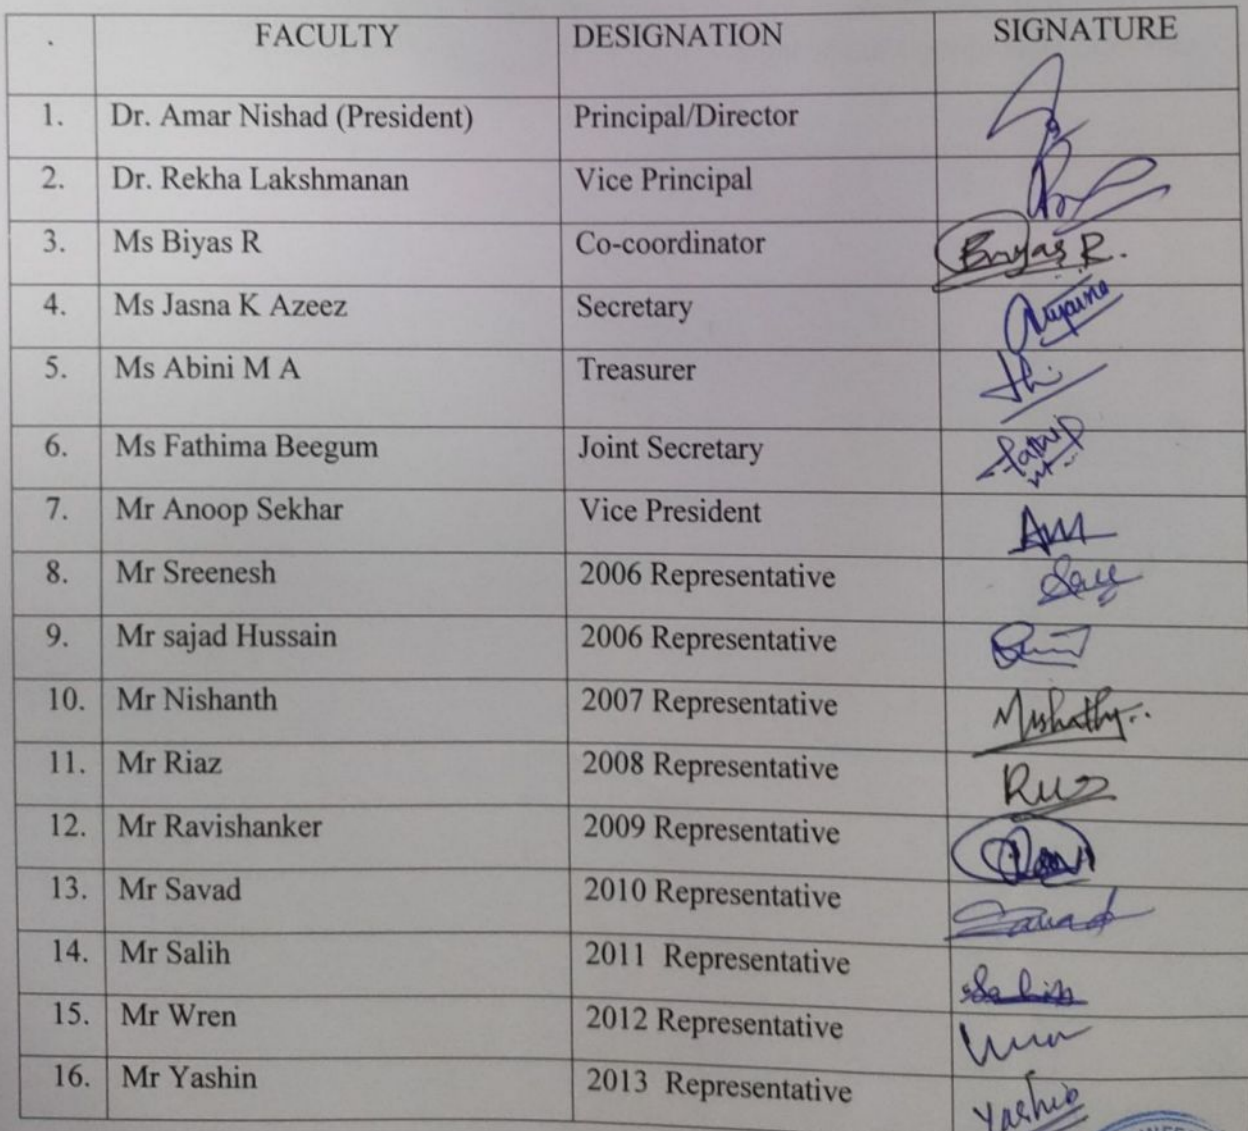 . FACULTY DESIGNATION SIGNATURE
1. Dr. Amar Nishad (President) Principal/Director
2. Dr. Rekha Lakshmanan Vice Principal
3. Ms Biyas R Co-coordinator Biyas R.
4. Ms Jasna K Azeez Secretary
5. Ms Abini M A Treasurer
6. Ms Fathima Beegum Joint Secretary
7. Mr Anoop Sekhar Vice President
8. Mr Sreenesh 2006 Representative
9. Mr sajad Hussain 2006 Representative
10. Mr Nishanth 2007 Representative
11. Mr Riaz 2008 Representative
12. Mr Ravishanker 2009 Representative
13. Mr Savad 2010 Representative Savad
14. Mr Salih 2011 Representative Salih
15. Mr Wren 2012 Representative
16. Mr Yashin 2013 Representative Yashin